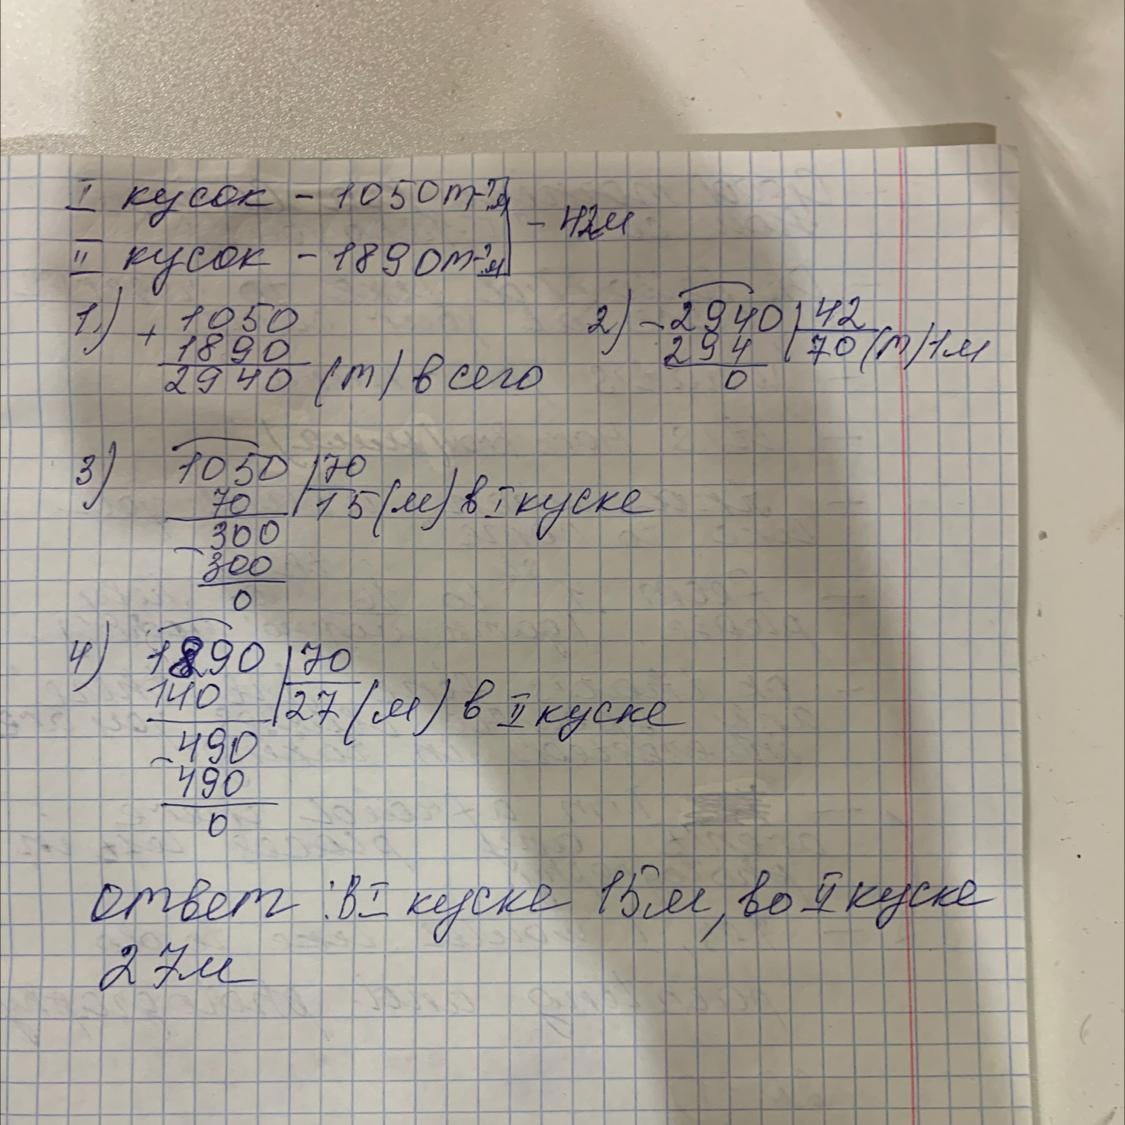 I кусок - 1050т-?м
II кусок - 1890т-?м
- 42м
1) + 1050
1890
2940 (т) всего
2) - 2940 | 42
294 70 (т) 1м
0
3) 1050 | 70
70 15 (м) в I куске
- 300
300
0
4) 1890 | 70
140 27 (м) в II куске
- 490
490
0
ответ : в I куске 15м, во II куске
27м